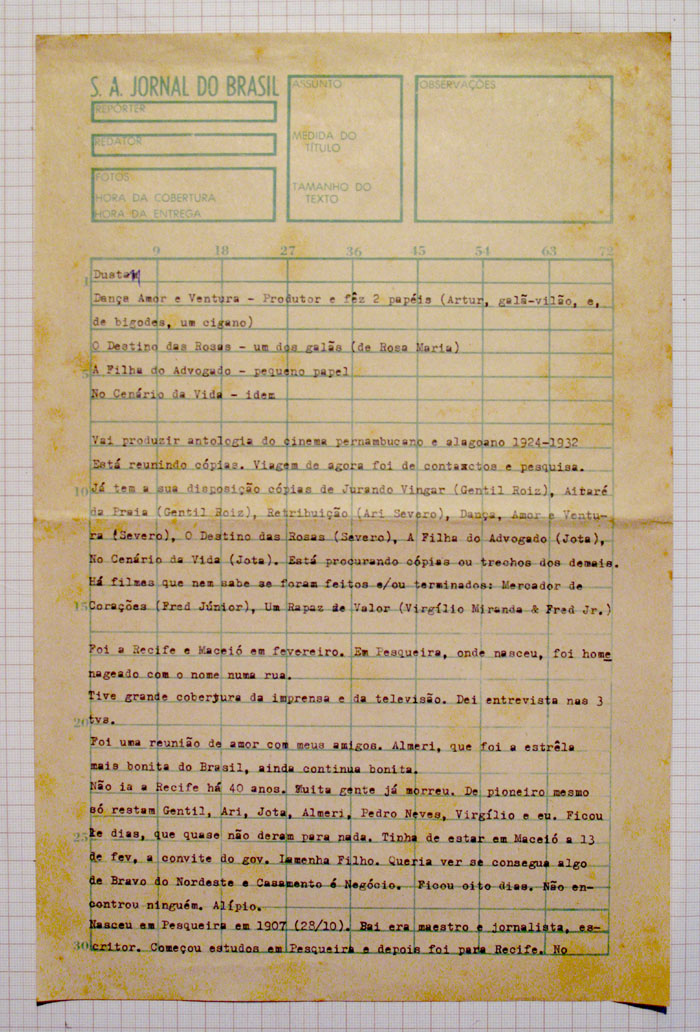 S. A. JORNAL DO BRASIL
REPÓRTER
REDATOR
FOTOS
HORA DA COBERTURA
HORA DA ENTREGA
ASSUNTO
MEDIDA DO
TÍTULO
TAMANHO DO
TEXTO
OBSERVAÇÕES
9 18 27 36 45 54 63 72
1
Dustan
Dança Amor e Ventura - Produtor e fêz 2 papéis (Artur, galã-vilão, e,
de bigodes, um cigano)
O Destino das Rosas - um dos galãs (de Rosa Maria)
5 A Filha do Advogado - pequeno papel
No Cenário da Vida - idem
Vai produzir antologia do cinema pernambucano e alagoano 1924-1932
Está reunindo cópias. Viagem de agora foi de contaxctos e pesquisa.
10 Já tem a sua disposição cópias de Jurando Vingar (Gentil Roiz), Aitaré
da Praia (Gentil Roiz), Retribuição (Ari Severo), Dança, Amor e Ventu-
ra (Severo), O Destino das Rosas (Severo), A Filha do Advogado (Jota),
No Cenário da Vida (Jota). Está procurando cópias ou trechos dos demais.
Há filmes que nem sabe se foram feitos e/ou terminados: Mercador de
15 Corações (Fred Júnior), Um Rapaz de Valor (Virgílio Miranda & Fred Jr.)
Foi a Recife e Maceió em fevereiro. Em Pesqueira, onde nasceu, foi home
nageado com o nome numa rua.
Tive grande cobertura da imprensa e da televisão. Dei entrevista nas 3
20 tvs.
Foi uma reunião de amor com meus amigos. Almeri, que foi a estrêla
mais bonita do Brasil, ainda continua bonita.
Não ia a Recife há 40 anos. Muita gente já morreu. De pioneiro mesmo
só restam Gentil, Ari, Jota, Almeri, Pedro Neves, Virgílio e eu. Ficou
25 dias, que quase não deram para nada. Tinha de estar em Maceió a 13
de fev, a convite do gov. Lamenha Filho. Queria ver se consegua algo
de Bravo do Nordeste e Casamento é Negócio. Ficou oito dias. Não en-
controu ninguém. Alípio.
Nasceu em Pesqueira em 1907 (28/10). Bai era maestro e jornalista, es-
30 critor. Começou estudos em Pesqueira e depois foi para Recife. No